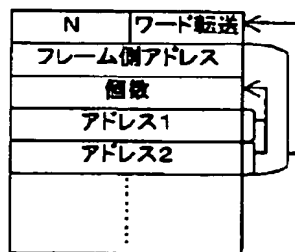 N ワード転送
フレーム側アドレス
個数
アドレス1
アドレス2